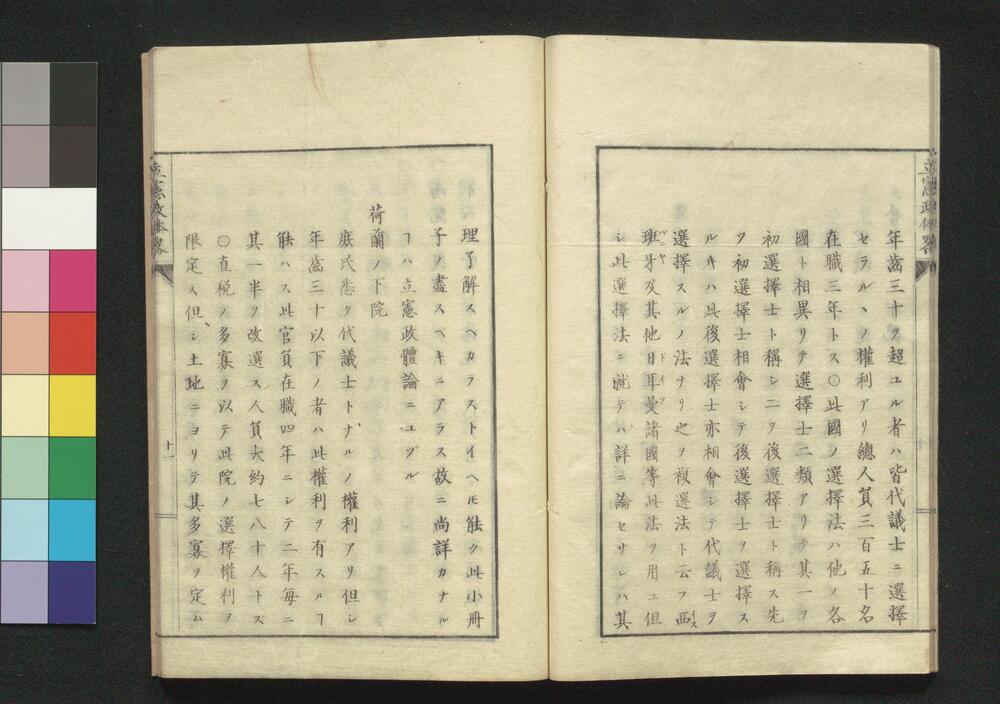 立憲政体略
年齒三十ヲ超ユル者ハ皆代議士ニ選擇
セラルヽノ權利アリ總人員三百五十名
在職三年トス〇此國ノ選擇法ハ他ノ各
國ト相異リテ選擇士二類アリテ其一ヲ
初選擇士ト稱シ二ヲ後選擇士ト稱ス先
ツ初選擇士相會シテ後選擇士ヲ選擇ス
ルキハ此後選擇士亦相會シテ代議士ヲ
選擇スルノ法ナリ之ヲ複選法ト云フ西
班牙及其他日耳曼諸國等此法ヲ用ユ但
シ此選擇法ニ就テハ詳ニ論セサレハ其
理了解スヘカラストイヘ㇓モ能ク此小冊
子ノ盡スヘキニアラス故ニ尚詳カナル
ヿハ立憲政體論ニユヅル
荷蘭ノ下院
庶民悉ク代議士トナルノ權利アリ但シ
年齒三十以下ノ者ハ此權利ヲ有スルヿ
能ハス此官員在職四年ニシテ二年每ニ
其一半ヲ改選ス人員大約七八十人トス
〇直税ノ多寡ヲ以テ此院ノ選擇權利ヲ
限定ス但シ土地ニヨリテ其多寡ヲ定ム
立憲政体略
十一